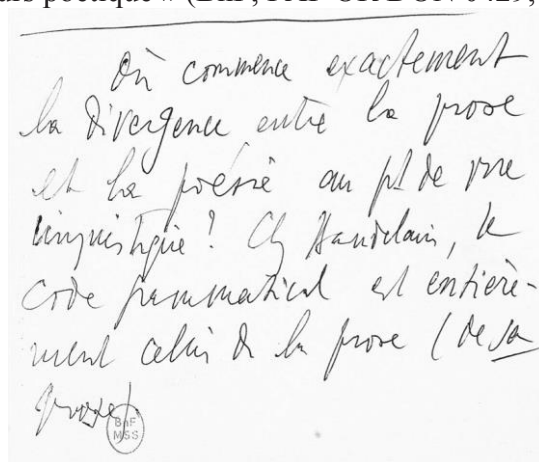 urs poétique » (BnF, PAP OR BOX 0429,
Où commence exactement
la divergence entre la prose
et la poésie au pt de vue
linguistique? Ch Baudelaire, le
code grammatical est entière-
ment celui de la prose (de sa
prose).
BnF
MSS